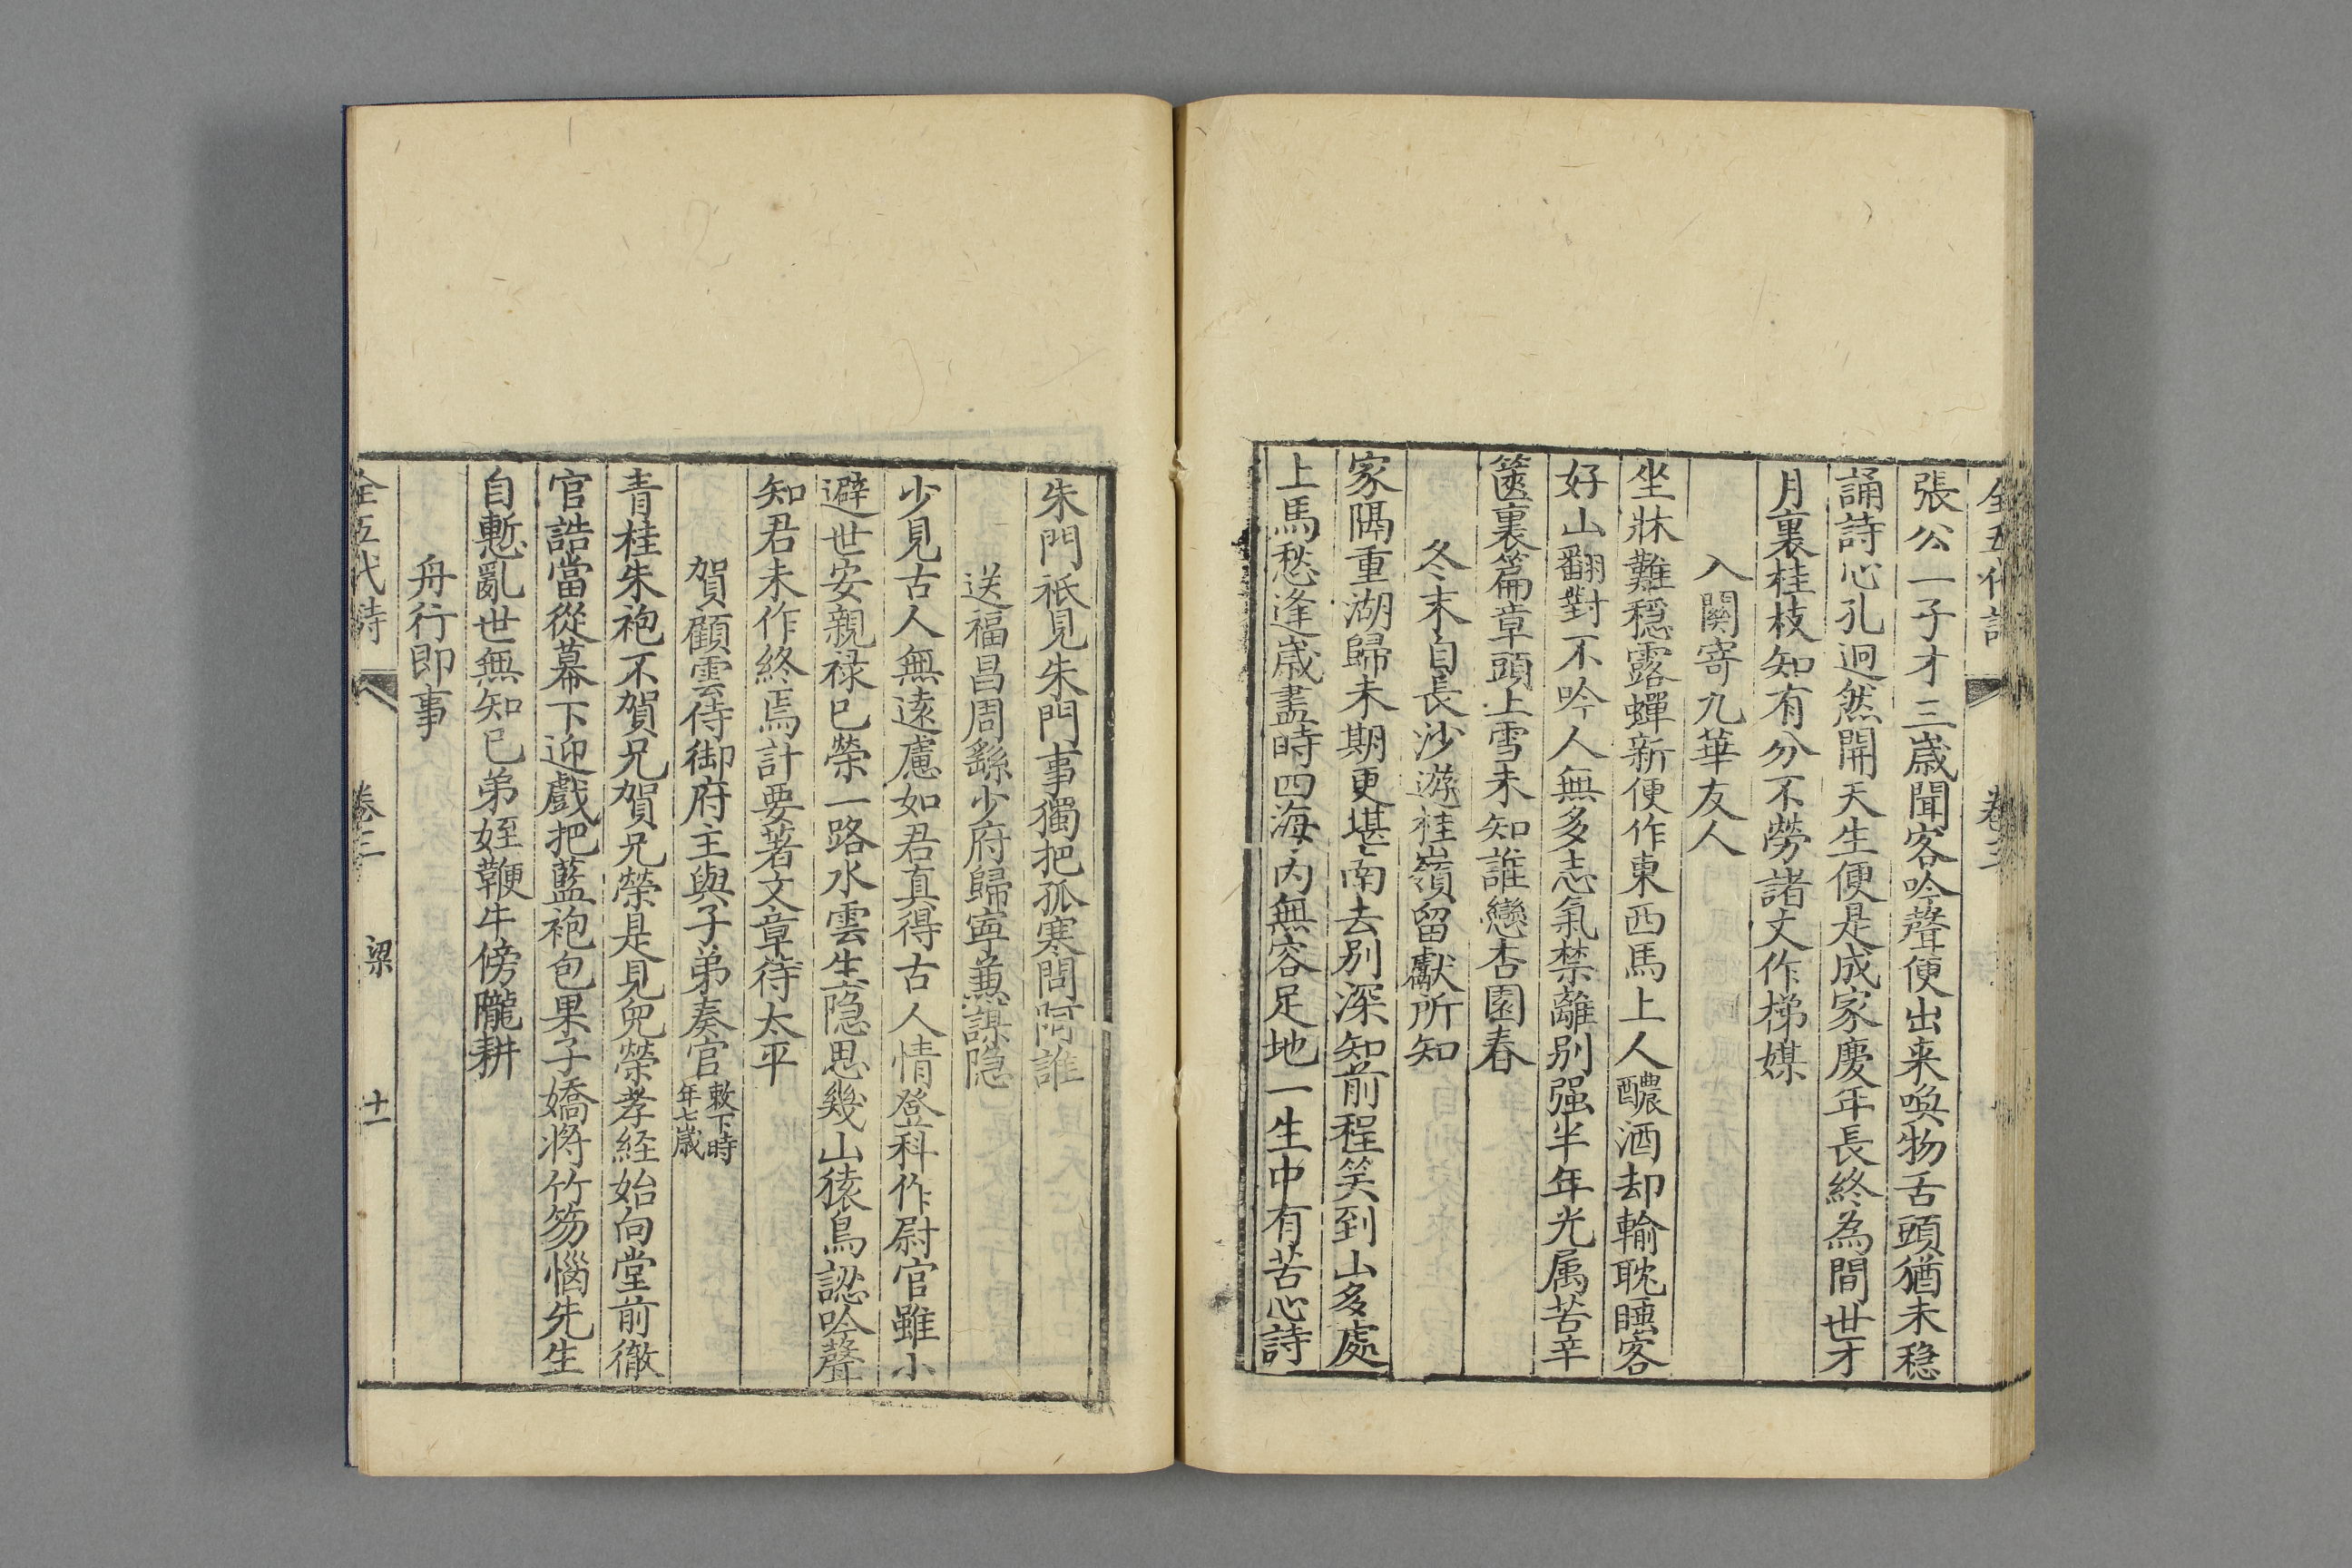 全五代詩 卷三
張公一子才三歲聞客吟聲便出来喚物舌頭猶未穏
誦詩心孔迥然開天生便是成家慶年長終為間世才
月裏桂枝知有分不勞諸丈作梯媒
入關寄九華友人
坐牀難穏露蟬新便作東西馬上人醲酒却輸耽睡客
好山翻對不吟人無多志氣禁離别强半年光属苦辛
篋裏篇章頭上雪未知誰戀杏園春
冬末自長沙遊桂嶺留獻所知
家隔重湖歸未期更堪南去别深知前程笑到山多處
上馬愁逢歲盡時四海内無容足地一生中有苦心詩
朱門祗見朱門事獨把孤寒問阿誰
送福昌周繇少府歸寧兼謀隱
少見古人無遠慮如君真得古人情登科作尉官雖小
避世安親禄已榮一路水雲生隠思幾山猿鳥認吟聲
知君未作終焉計要著文章待太平
賀顧雲侍御府主與子弟奏官 敕下時年七歲
青桂朱袍不賀兄賀兄榮是見兒榮孝經始向堂前徹
官誥當從幕下迎戲把藍袍包果子嬌将竹笏惱先生
自慙亂世無知已弟姪鞭牛傍隴耕
舟行即事
全五代詩 卷三 梁 十一